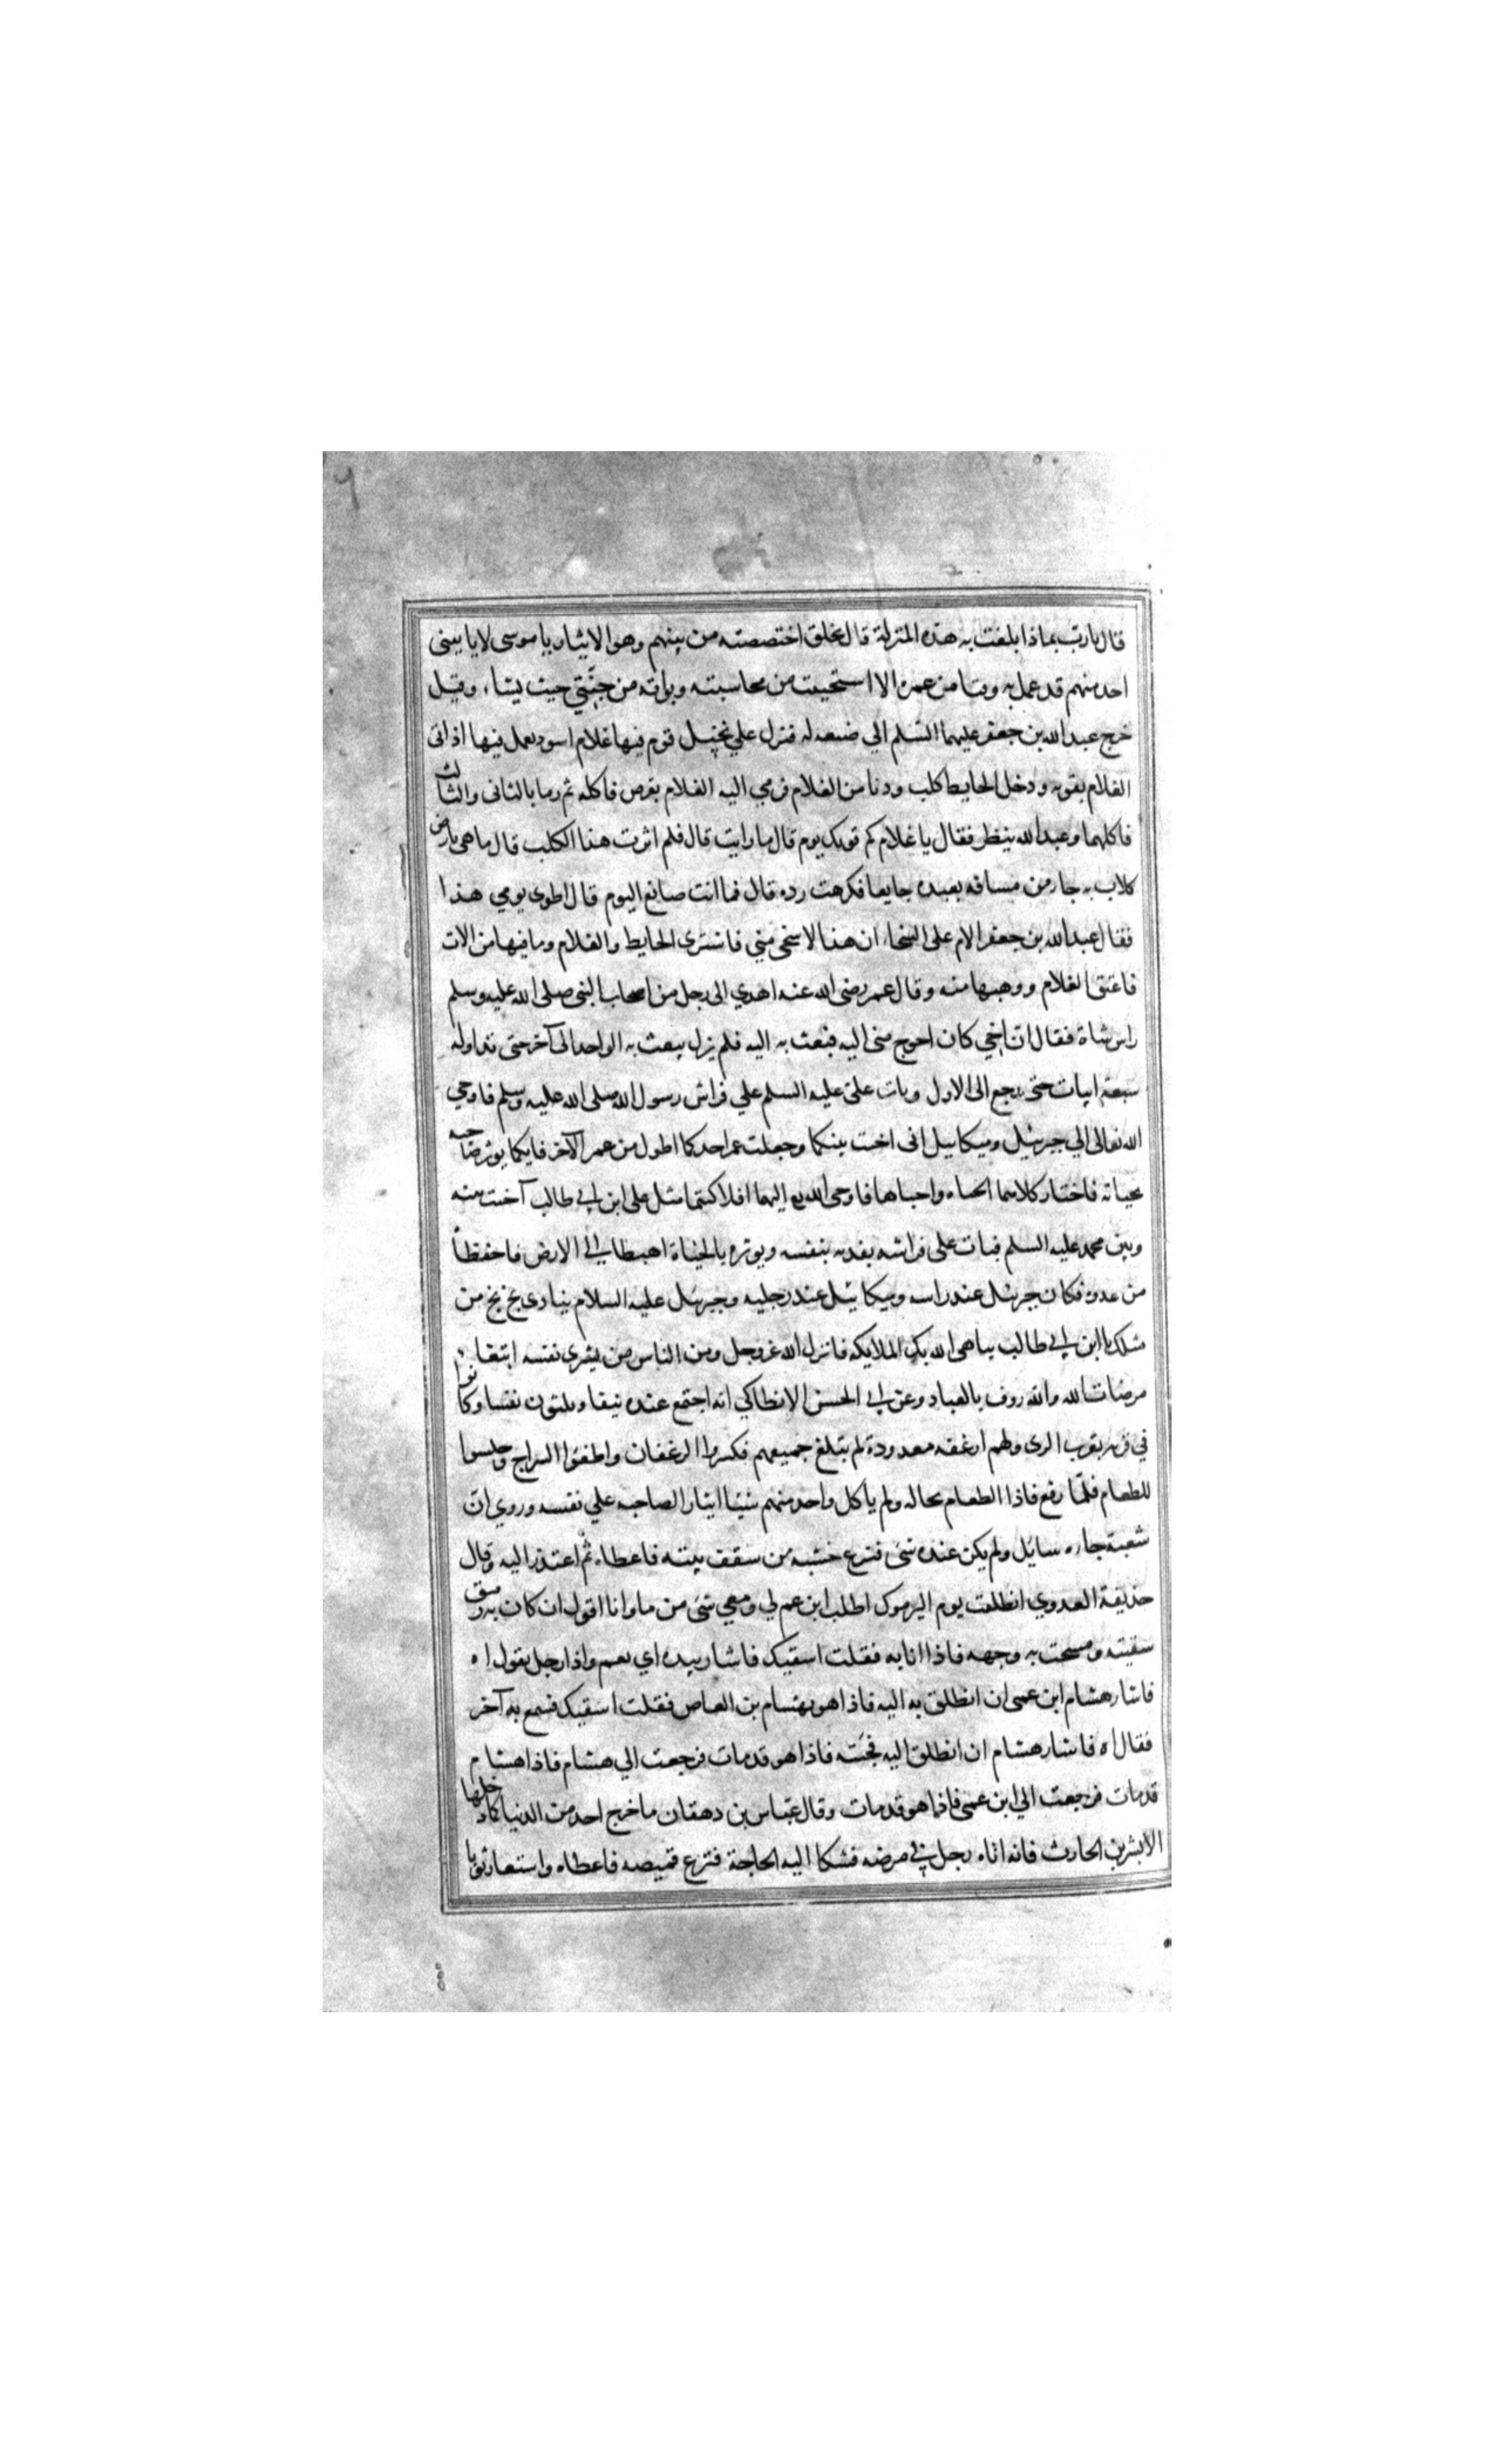 قال يارب بماذا بلغت به هذه المنزلة قال بخلق اختصصته من بينهم وهو الايثار يا موسى لا ياتيني
احد منهم قد عمل به وقتا من عمره الا استحييت من محاسبته وبواته من جنّتي حيث يشاء وقيل
خرج عبد الله بن جعفر عليهما السّلم الي ضيعه له فنزل علي نخيل قوم فيها غلام اسود يعمل فيها اذ اتى
الغلام بقوته ودخل الحايط كلب ودنا من الغلام فرمي اليه الغلام بقرص فاكله ثم رما بالثانى والثالث
فاكلهما وعبد الله ينظر فقال يا غلام كم قوتك يوم قال ما رايت قال فلم اثرت هذا الكلب قال ما هى بارض
كلاب به جا من مسافه بعيده جايعا فكرهت رده قال فما انت صانع اليوم قال اطوى يومي هذا
فقال عبد الله بن جعفر الام على السخا ان هذا لاسخى مني فاشترى الحايط والغلام وما فيها من الات
فاعتق الغلام ووهبها منه وقال عمر رضى الله عنه اهدي الى رجل من اصحاب النبى صلى الله عليه وسلم
راس شاة فقال ان اخي كان احوج منى اليه فبعث به اليه فلم يزل يبعث به الواحد الى آخر حتى تداوله
سبعة ابيات حتى رجع الى الاول وبات علىّ عليه السلم علي فراش رسول الله صلى الله عليه وسلم فاوحي
الله تعالى الي جبرئيل وميكاييل انى اخيت بينكما وجعلت عمر احدكما اطول من عمر الآخر فايكما يوثر صاحبه
بحياته فاختار كلاهما الحياه واحباها فاوحى الله تع اليهما افلا كنتما مثل على ابن ابي طالب آخيت بينه
وبين محمد عليه السلم فبات على فراشه يفديه بنفسه ويوثره بالحيٰاة اهبطا الي الارض فاحفظاٰه
من عدوه فكان جبرئيل عند راسه وميكائيل عند رجليه وجبرئيل عليه السلام ينادى بخ بخ من
مثلك يا ابن ابي طالب يباهى الله بك الملايكه فانزل الله عز وجل ومن الناس من يشرى نفسه ابتغاء
مرضات الله والله روف بالعباد وعن ابي الحسن الانطاكي انه اجتمع عنده نيفا وثلثون نفسا وكانوا
في قريه بقرب الرى ولهم ارغفه معدودة لم تبلغ جميعهم فكسروا الرغفان واطفئوا السراج وجلسوا
للطعام فلمّا رفع فاذا الطعام بحاله ولم ياكل واحد منهم شيئا ايثارا لصاحبه علي نفسه وروي انّ
شعبة جاءه سايل ولم يكن عنده شى فنزع خشبه من سقف بيته فاعطاه ثم اعتذر اليه وقال
حذيفة العدوي انطلقت يوم اليرموك اطلب ابن عم لي ومعي شى من ما وانا اقول ان كان به رمق
سقيته ومسحت به وجهه فاذا انا به فقلت اسقيك فاشار بيده اي نعم واذا رجل يقول اه
فاشار هشام ابن عمى ان انطلق به اليه فاذا هو هشام بن العاص فقلت اسقيك فسمع به آخر
فقال اه فاشار هشام ان انطلق اليه فجئته فاذا هو قد مات فرجعت الي هشام فاذا هشام
قد مات فرجعت الي ابن عمى فاذا هو قد مات وقال عبّاس بن دهقان ما خرج احد من الدنيا كما دخلها
الا بشر بن الحارث فانه اتاه رجل في مرضه فشكا اليه الحاجة فنزع قميصه فاعطاه واستعار ثوبا